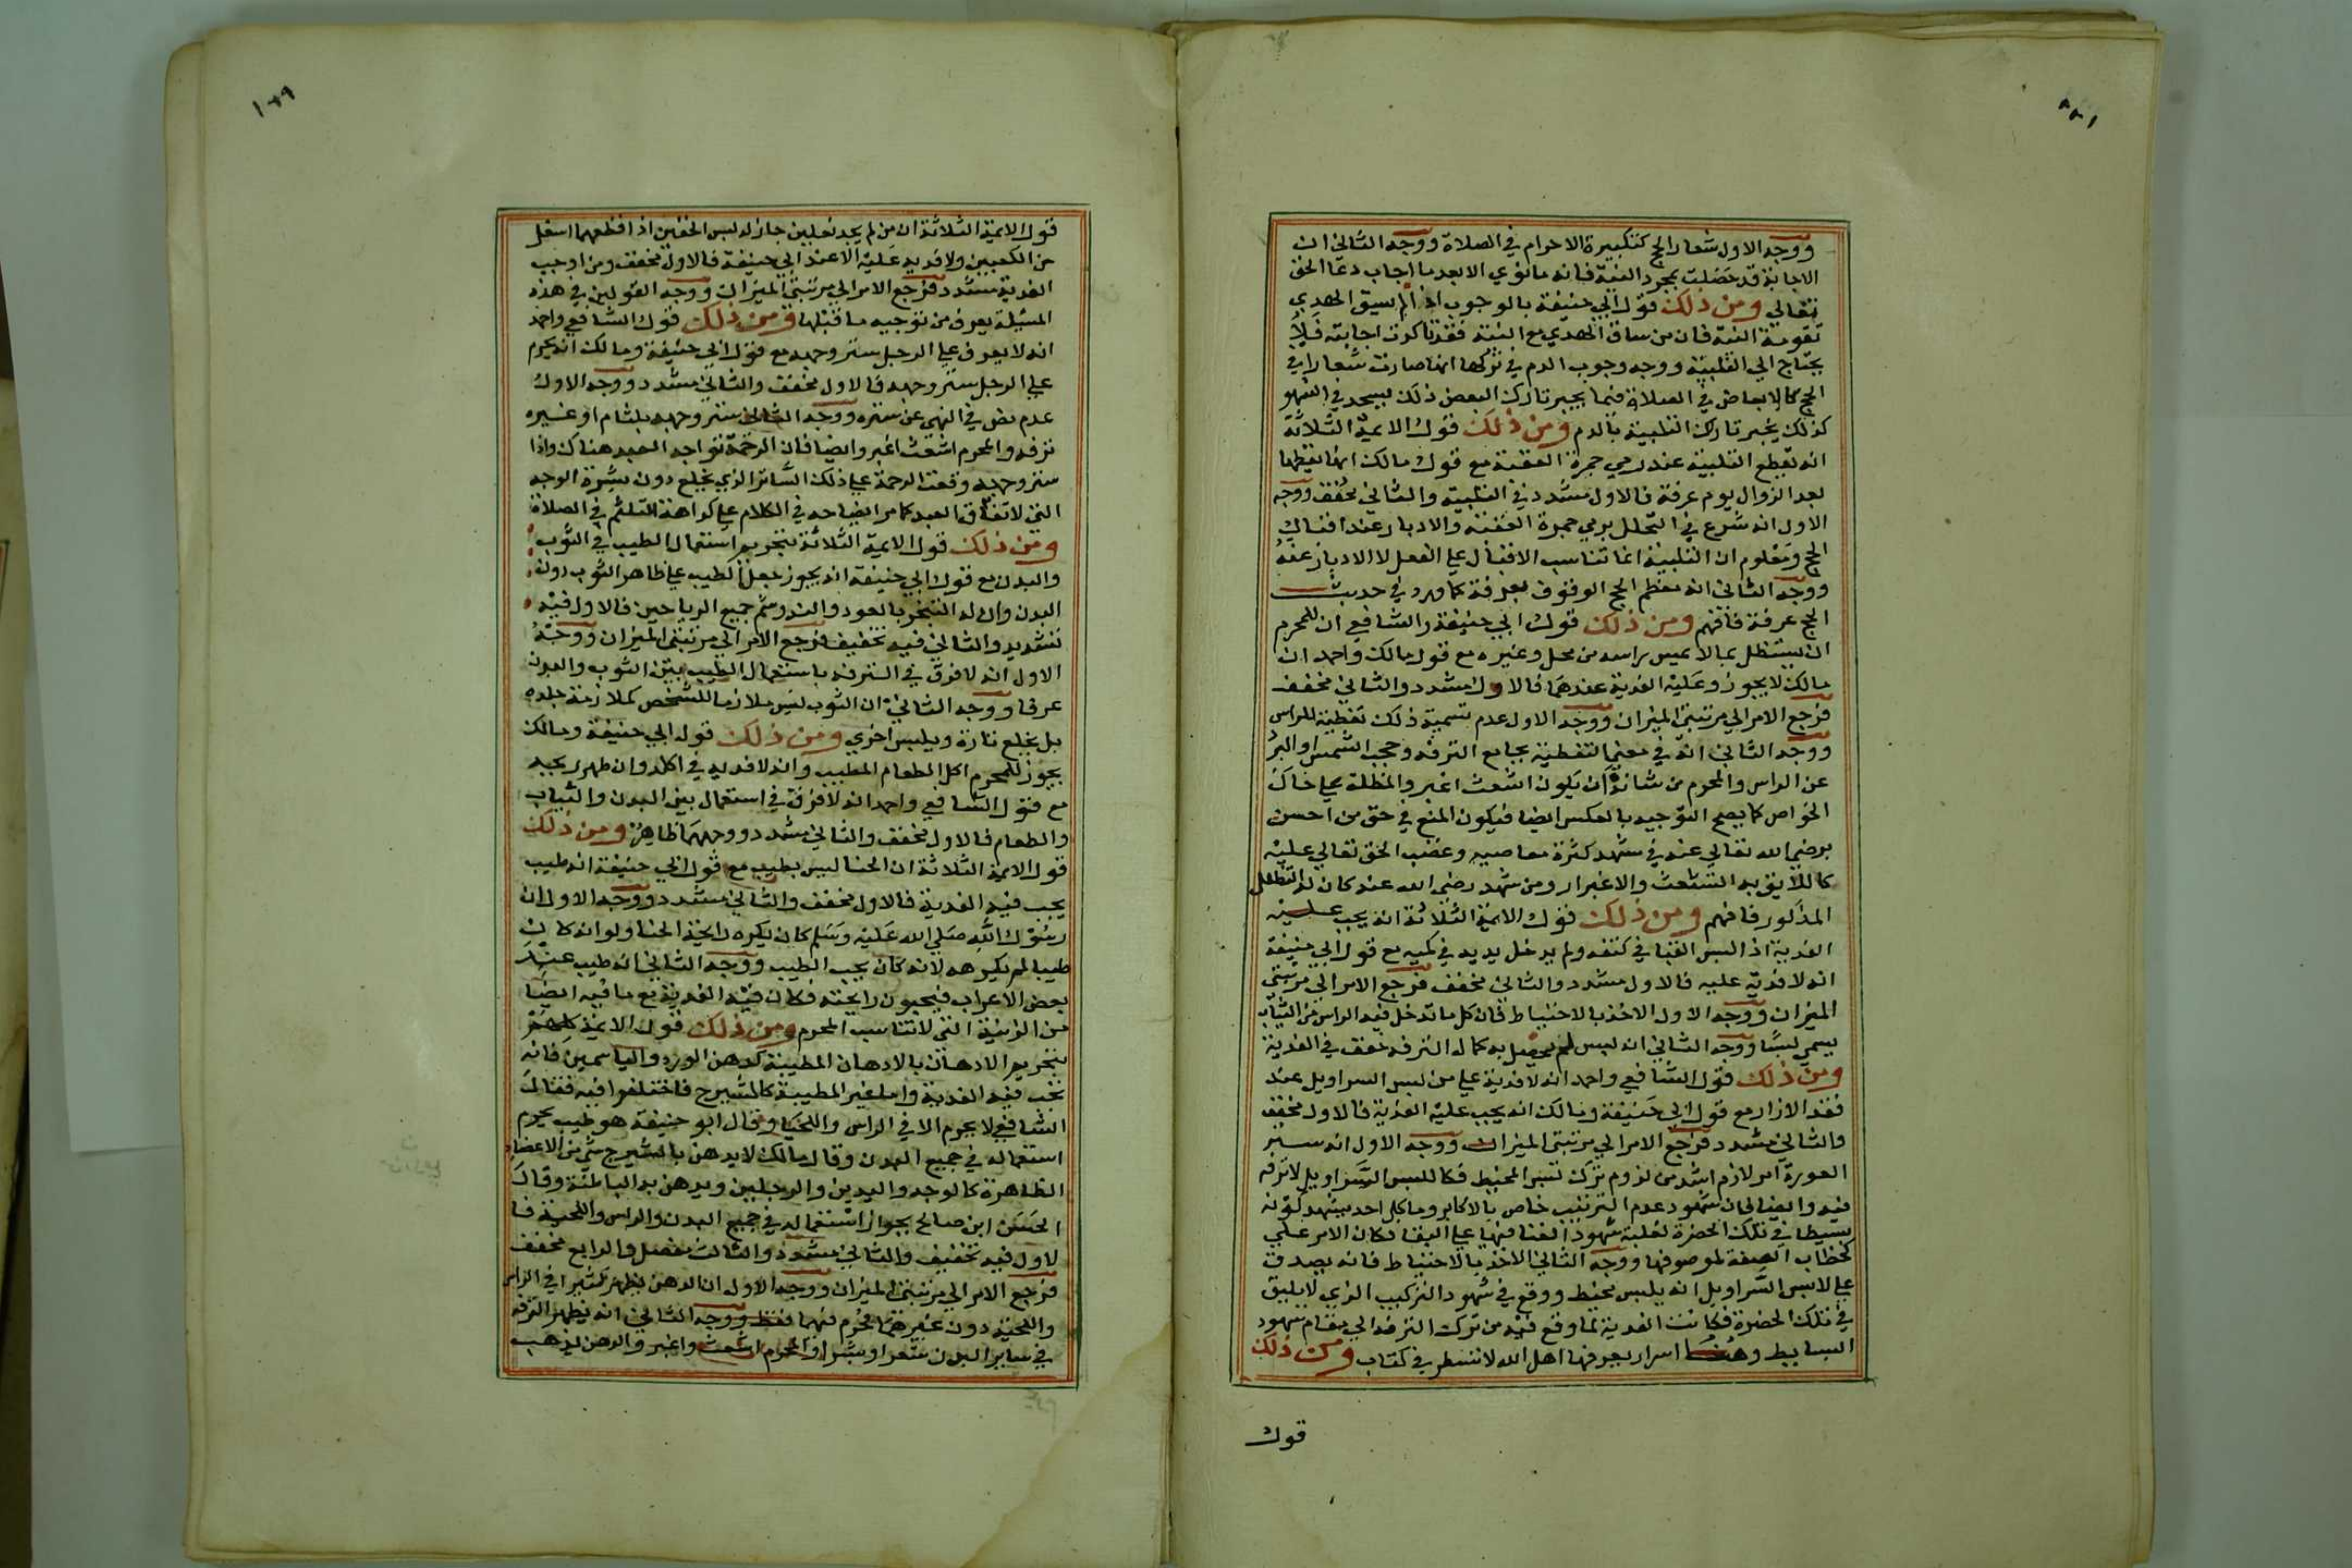 ووجه الاول شعار الحج كتكبيرة الاحرام في الصلاة ووجه الثاني ان
الاجابة قد حصلت بمجرد النية فانه ما نوي الا بعد ما اجاب دعا الحق
تعالي ومن ذلك قول ابي حنيفة بالوجوب اذا لم يسق الهدي
تقوية النية فان من ساق الهدي مع النية فقد تاكدت اجابته فلا
يحتاج الي التلبية ووجه وجوب الدم في تركها انها صارت شعارا في
الحج كالابعاض في الصلاة فكما يجبر تارك البعض ذلك بسجود السهو
كذلك يجبر تارك التلبية بالدم ومن ذلك قول الايمة الثلاثة
انه تقطع التلبية عند رمي جمرة العقبة مع قول مالك انها يقطعها
بعد الزوال يوم عرفة فالاول مشدد في التلبية والثاني مخفف ووجه
الاول انه شرع في التحلل برمي جمرة العقبة والادبار عند افعال
الحج ومعلوم ان التلبية انما تناسب الاقبال علي الفعل لا الادبار عنه
ووجه الثاني انه معظم الحج الوقوف بعرفة كما ورد في حديث
الحج عرفة فافهم ومن ذلك قول ابي حنيفة والشافعي ان للمحرم
ان يستظل بما لا يمس راسه من محل وغيره مع قول مالك واحمد ان
مالك لا يجوز وعليه الفدية عندهما فالاول مشدد والثاني مخفف
فرجع الامر الي مرتبتي الميزان ووجه الاول عدم تسمية ذلك تغطية للراس
ووجه الثاني انه في معني التغطية بجامع الترفه وحجب الشمس او البرد
عن الراس والمحرم من شانه ان يكون اشعث اغبر والمظلة علي خلاف
الخواص كما يصح التوجيه بالعكس ايضا فيكون المنع في حق من احسن
برضي الله تعالي عنه في شهد كثرة معاصيه وغضب الحق تعالي عليه
كاللايق به التشعث والاغبرار ومن شهد رضي الله عنه كان له التظلل
المذكور فافهم ومن ذلك قول الايمة الثلاثة انه يجب عليه
الفدية اذا لبس القبا في كتفه ولم يدخل يديه في كميه مع قول ابي حنيفة
انه لا فدية عليه فالاول مشدد والثاني مخفف فرجع الامر الي مرتبتي
الميزان ووجه الاول الاخذ بالاحتياط فان كل ما تدخل فيه الراس من الثياب
يسمي لبسا ووجه الثاني انه لبس لم يحصل به كمال الترفه فخفف في الفدية
ومن ذلك قول الشافعي واحمد انه لا فدية علي من لبس السراويل عند
فقد الازار مع قول ابي حنيفة ومالك انه يجب عليه الفدية فالاول مخفف
والثاني مشدد فرجع الامر الي مرتبتي الميزان ووجه الاول انه ستر
العورة امر لازم اشد من لزوم ترك لبس المخيط فكان للبس السراويل لا ترفه
فيه وايضا فان شهود عدم الترتيب خاص بالاكابر وما كل احد يشهد كونه
بسيطا في تلك الحضرة لغلبة شهود الفنا فيها علي البقا فكان الامر علي
كخطاب الصفة لموصوفها ووجه الثاني الاخذ بالاحتياط فانه يصدق
علي لابس السراويل انه يلبس مخيط ووقع في شهود التركيب الذي لا يليق
في تلك الحضرة فكانت الفدية لما وقع فيه من ترك الترفه الي مقام شهود
البسايط وهنا اسرار يعرفها اهل الله لا تسطر في كتاب ومن ذلك
قول
١٦٩
قول الايمة الثلاثة ان من لم يجد نعلين جاز له لبس الخفين اذا قطعهما اسفل
من الكعبين ولا فدية عليه الا عند ابي حنيفة فالاول مخفف ومن اوجب
الفدية مشدد فرجع الامر الي مرتبتي الميزان ووجه القولين في هذه
المسئلة يعرف من توجيه ما قبلها ومن ذلك قول الشافعي واحمد
انه لا يحرم علي الرجل ستر وجهه مع قول ابي حنيفة ومالك انه يحرم
علي الرجل ستر وجهه فالاول مخفف والثاني مشدد ووجه الاول
عدم نص في النهي عن ستره ووجه الثاني ستر وجهه بلثام او غيره
ترفه والمحرم اشعث اغبر وايضا فان الرحمة تواجه العبد هناك واذا
ستر وجهه وقعت الرحمة علي ذلك الساتر الذي يخلع دون بشرة الوجه
التي لا تفارق العبد كما مر ايضاحه في الكلام علي كراهة التلثم في الصلاة
ومن ذلك قول الايمة الثلاثة بتحريم استعمال الطيب في الثوب
والبدن مع قول ابي حنيفة انه يجوز جعل الطيب علي ظاهر الثوب دون
البدن وان له التبخر بالعود والند وشم جميع الرياحين فالاول فيه
تشديد والثاني فيه تخفيف فرجع الامر الي مرتبتي الميزان ووجه
الاول انه لا فرق في الترفه باستعمال الطيب بين الثوب والبدن
عرفا ووجه الثاني ان الثوب ليس ملازما للشخص كملازمة جلده
بل يخلع تارة ويلبس اخري ومن ذلك قول ابي حنيفة ومالك
يجوز للمحرم اكل الطعام المطيب وانه لا فدية في اكله وان ظهر ريحه
مع قول الشافعي واحمد انه لا فرق في استعمال بين البدن والثياب
والطعام فالاول مخفف والثاني مشدد ووجههما ظاهر ومن ذلك
قول الايمة الثلاثة ان الحنا ليس بطيب مع قول ابي حنيفة انه طيب
يجب فيه الفدية فالاول مخفف والثاني مشدد ووجه الاول ان
رسول الله صلي الله عليه وسلم كان يكره رايحة الحنا ولو انه كان
طيبا لم يكرهه لانه كان يحب الطيب ووجه الثاني انه طيب عند
بعض الاعراب فيحبون رايحته فكان فيه الفدية مع ما فيه ايضا
من الزينة التي لا تناسب المحرم ومن ذلك قول الايمة كلهم
بتحريم الادهان بالادهان المطيبة كدهن الورد والياسمين فانه
تجب فيه الفدية واما غير المطيبة كالشيرج فاختلفوا فيه فقال
الشافعي لا يحرم الا في الراس واللحيا وقال ابو حنيفة هو طيب يحرم
استعماله في جميع البدن وقال مالك لا يدهن بالشيرج شي من الاعضا
الظاهرة كالوجه واليدين والرجلين ويدهن به الباطنة وقال
الحسن ابن صالح بجواز استعماله في جميع البدن والراس واللحية فا
لاول فيه تخفيف والثاني مشدد والثالث مفصل والرابع مخفف
فرجع الامر الي مرتبتي الميزان ووجه الاول ان الدهن يظهر كثيرا في الراس
واللحية دون غيرهما فحرم فيهما فقط ووجه الثاني انه يظهر الترفه
في ساير البدن شعرا وبشرا والمحرم اشعث واغبر والدهن يذهب